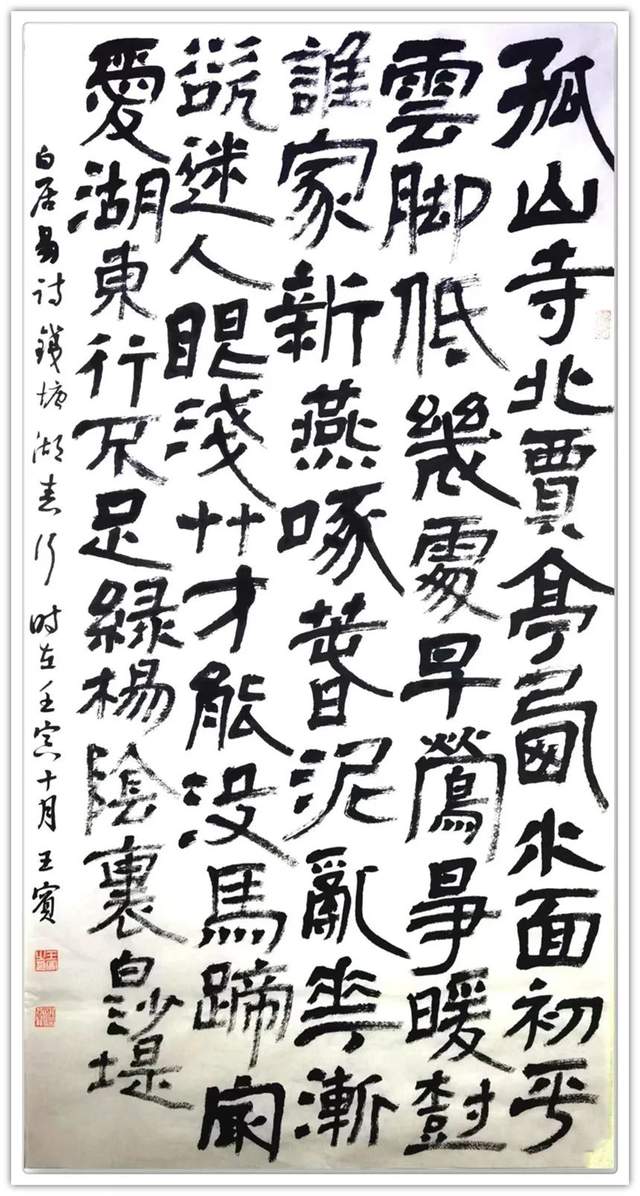 孤山寺北賈亭西水面初平
雲脚低幾處早鶯爭暖樹
誰家新燕啄春泥亂花漸
欲迷人眼淺艸才能没馬蹄最
愛湖東行不足緑楊陰裏白沙堤
白居易诗錢塘湖春行时在壬寅十月王賓